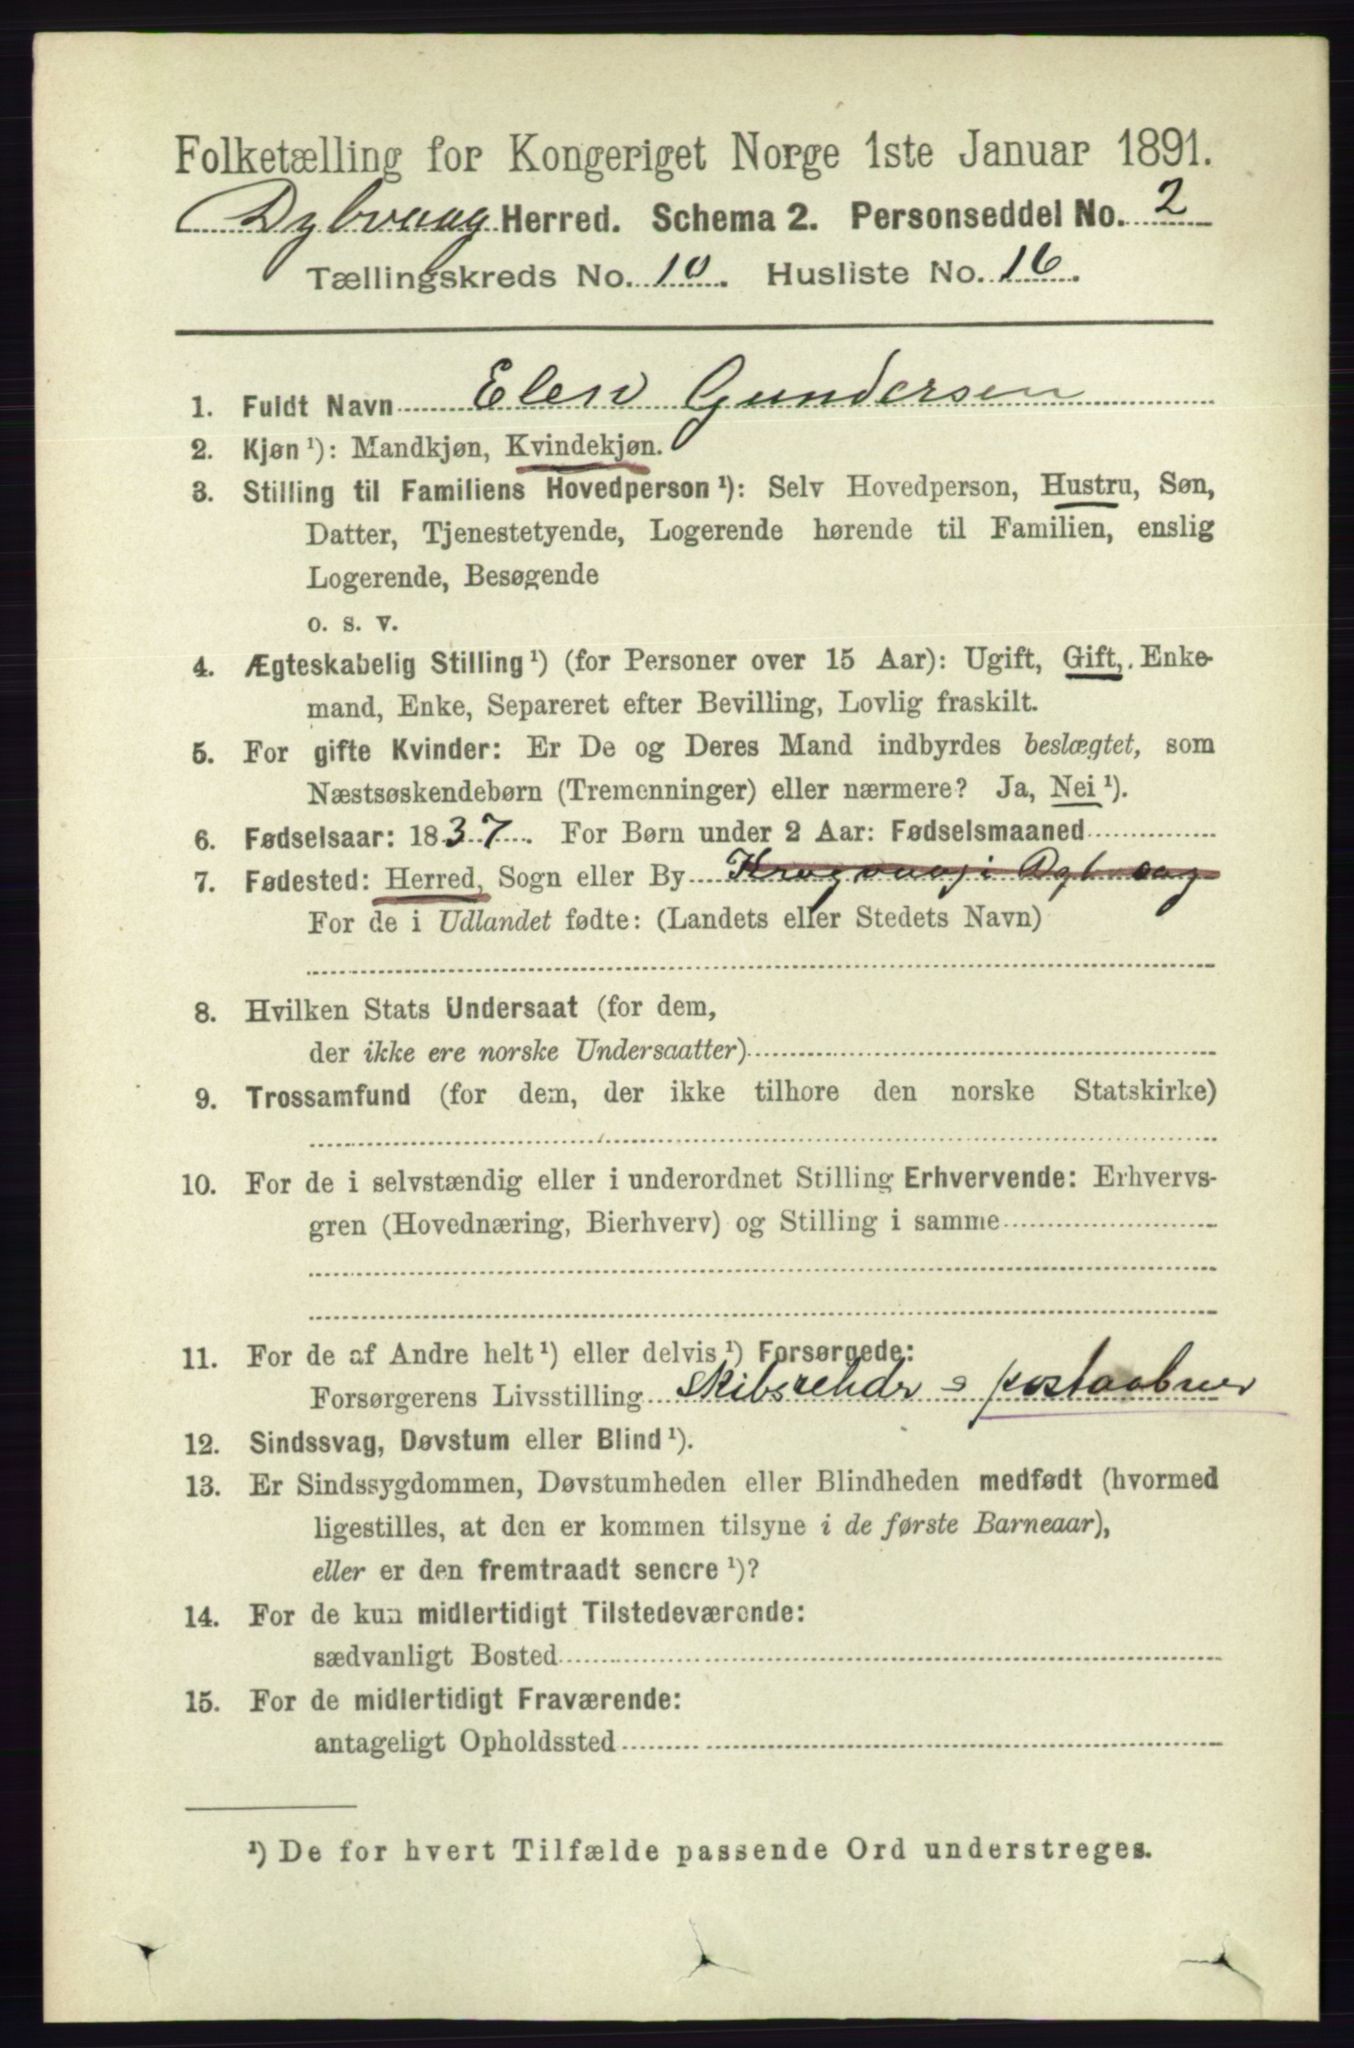 Folketælling for Kongeriget Norge 1ste Januar 1891.
Dybvaag Herred. Schema 2. Personseddel No. 2
Tællingskreds No. 10. Husliste No. 16.
1. Fuldt Navn Elen Gundersen
2. Kjøn ¹): Mandkjøn, Kvindekjøn.
3. Stilling til Familiens Hovedperson ¹): Selv Hovedperson, Hustru, Søn,
Datter, Tjenestetyende, Logerende hørende til Familien, enslig
Logerende, Besøgende
o. s. v.
4. Ægteskabelig Stilling ¹) (for Personer over 15 Aar): Ugift, Gift, Enke-
mand, Enke, Separeret efter Bevilling, Lovlig fraskilt.
5. For gifte Kvinder: Er De og Deres Mand indbyrdes beslægtet, som
Næstsøskendebørn (Tremenninger) eller nærmere? Ja, Nei ¹).
6. Fødselsaar: 1837. For Børn under 2 Aar: Fødselsmaaned
7. Fødested: Herred, Sogn eller By i Dybvaag
For de i Udlandet fødte: (Landets eller Stedets Navn)
8. Hvilken Stats Undersaat (for dem,
der ikke ere norske Undersaatter)
9. Trossamfund (for dem, der ikke tilhøre den norske Statskirke)
10. For de i selvstændig eller i underordnet Stilling Erhvervende: Erhvervs-
gren (Hovednæring, Bierhverv) og Stilling i samme
11. For de af Andre helt ¹) eller delvis ¹) Forsørgede:
Forsørgerens Livsstilling Skibsrehdr = postaabner
12. Sindssvag, Døvstum eller Blind ¹).
13. Er Sindssygdommen, Døvstumheden eller Blindheden medfødt (hvormed
ligestilles, at den er kommen tilsyne i de første Barneaar),
eller er den fremtraadt senere ¹)?
14. For de kun midlertidigt Tilstedeværende:
sædvanligt Bosted
15. For de midlertidigt Fraværende:
antageligt Opholdssted
¹) De for hvert Tilfælde passende Ord understreges.